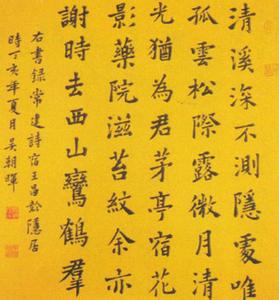 清溪深不測隱處唯
孤雲松際露微月清
光猶為君茅亭宿花
影藥院滋苔紋余亦
謝時去西山鸞鶴羣
右書録常建詩宿王昌齡隱居
時丁亥年夏月吴朝暉